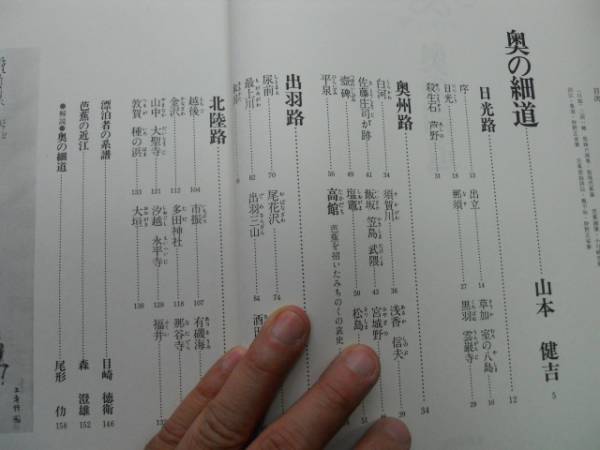 目次
奥の細道 山本 健吉 5
日光路 12
序 13 出立 14 草加 室の八島 16
日光 18 那須 27 黒羽 雲巌寺 29
殺生石 芦野 31
奥州路 34
白河 34 須賀川 36 浅香 信夫 39
佐藤庄司が跡 41 飯坂 笠島 武隈 43 宮城野
壺碑 49 塩竈 50 松島
平泉 56 高館 芭蕉を招いたみちのくの哀史
出羽路
尿前 70 尾花沢 74
最上川 82 出羽三山 84 酒田
象潟
北陸路
越後 104 市振 107 有磯海
金沢 112 多田神社 118 那谷寺
山中 大聖寺 121 汐越 永平寺 128 福井
敦賀 種の浜 133 大垣 138
漂泊者の系譜 目崎 徳衛 146
芭蕉の近江 森 澄雄 152
●解説●奥の細道 尾形 仂 158